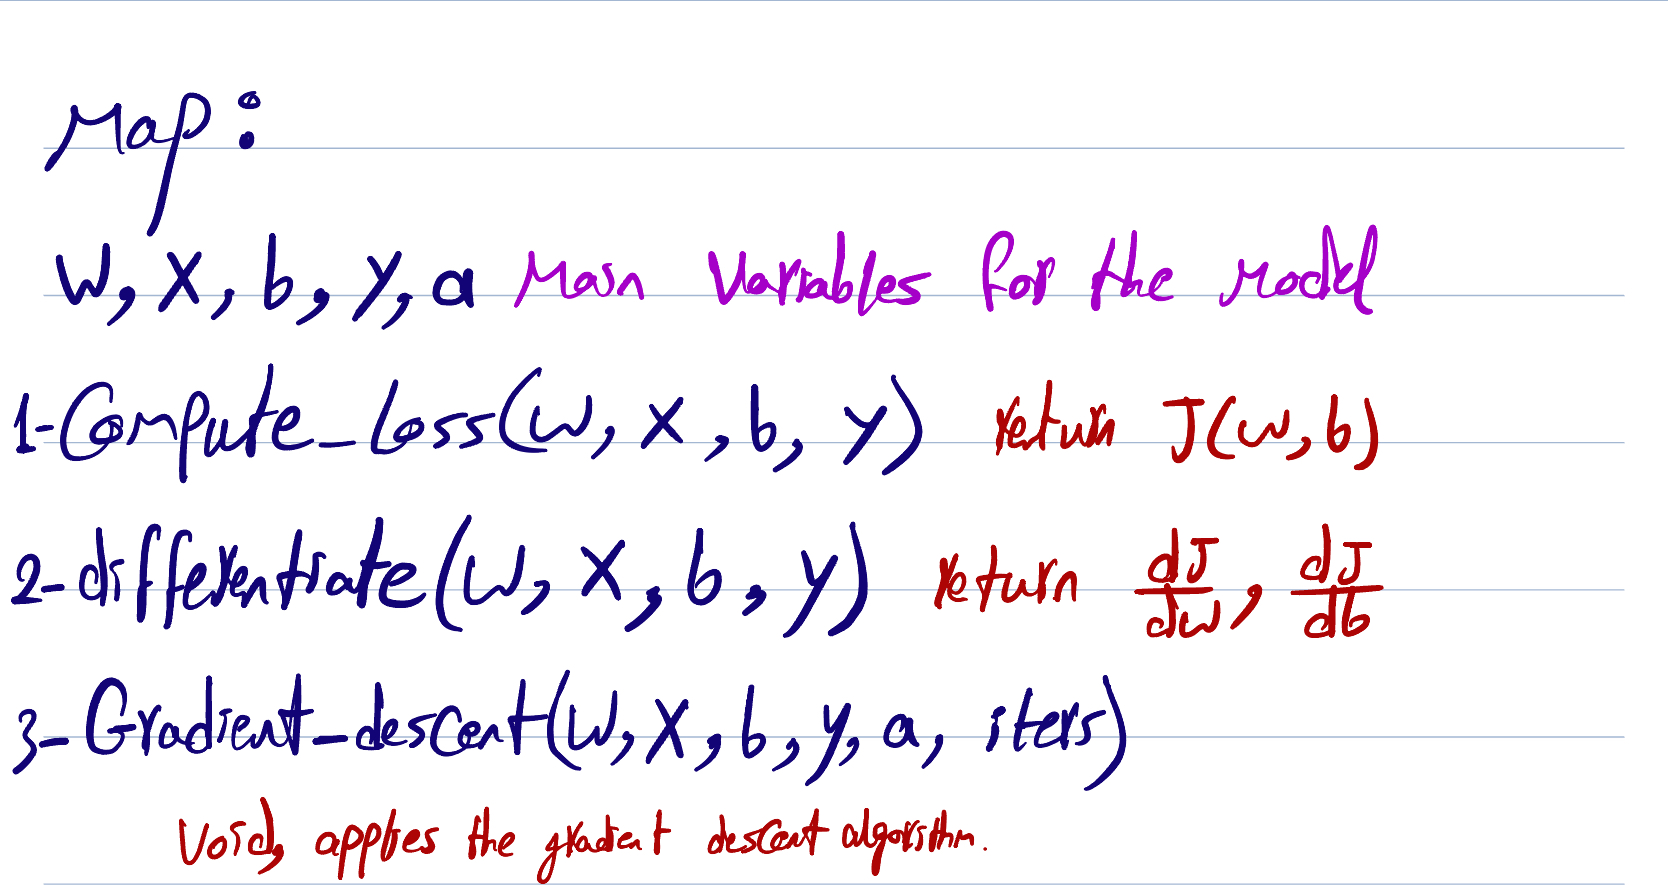 Map:
W, X, b, y, a Main Variables for the Model
1-Compute_Loss(W, X, b, y) return J(w,b)
2-differentiate(W, X, b, y) return dJ/dw, dJ/db
3-Gradient_descent(W, X, b, y, a, iters)
Void, applies the gradient descent algorithm.